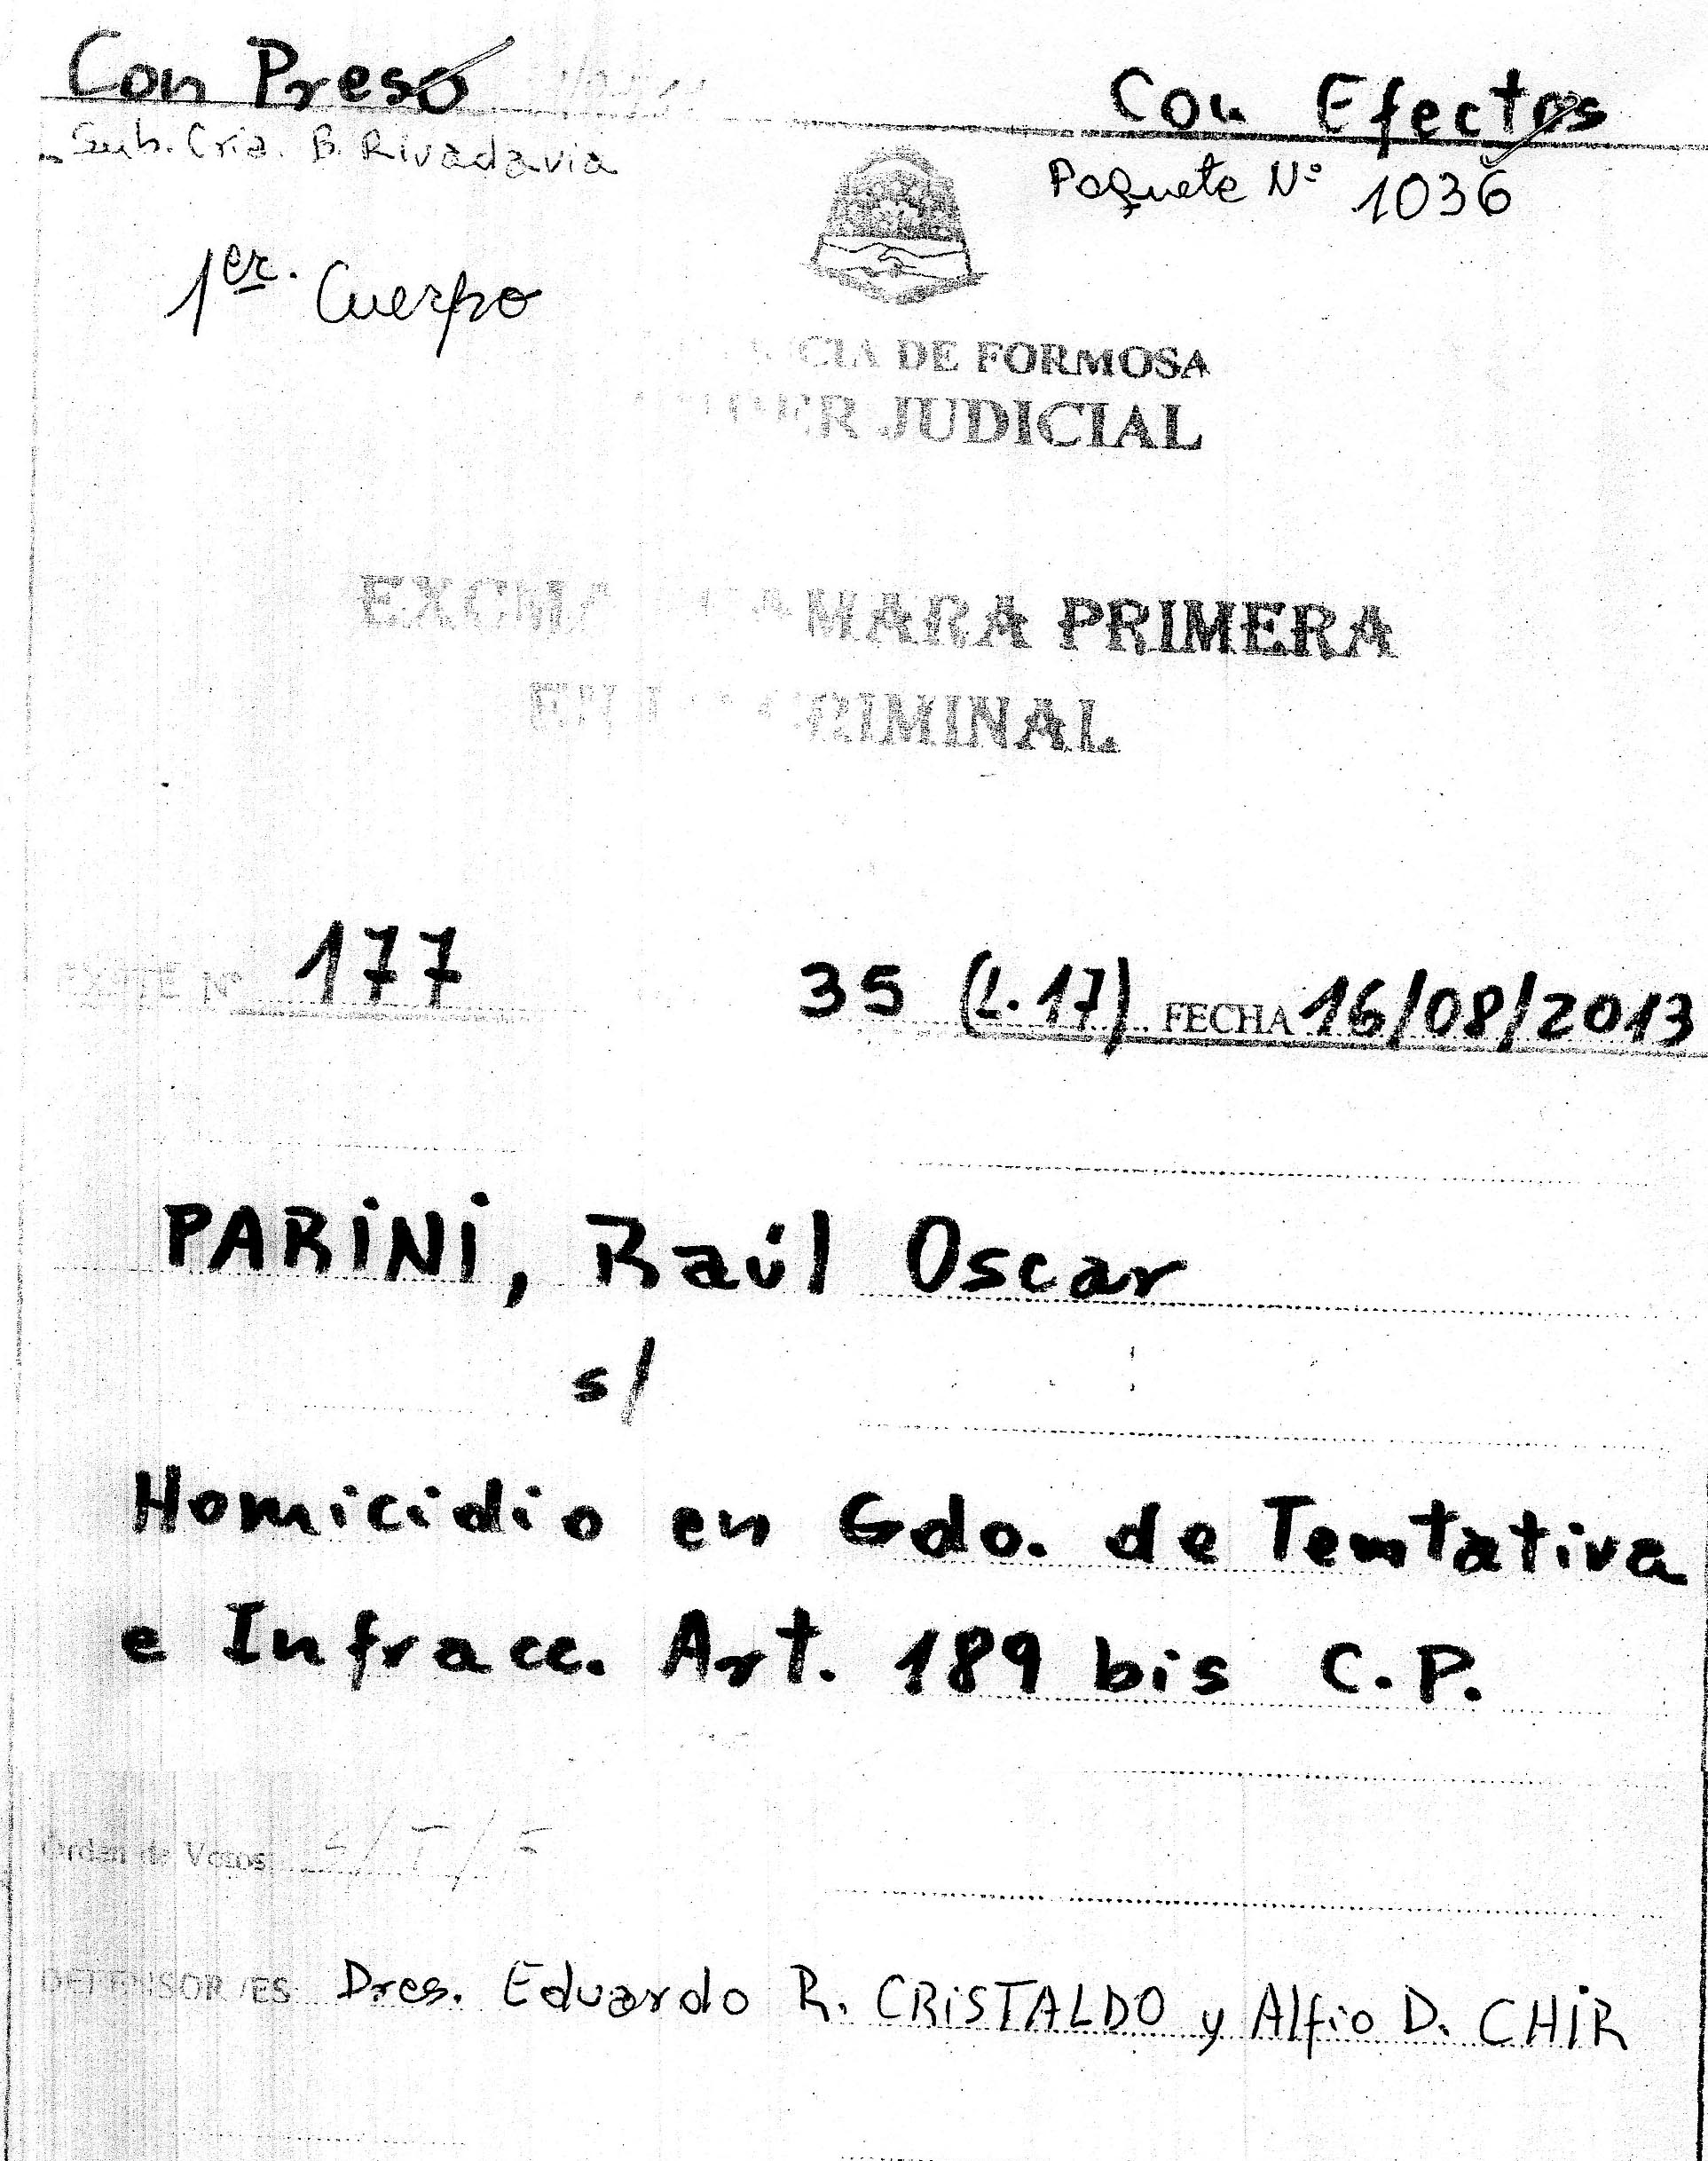 Con Preso
Con Efectos
Sub. Cria. B. Rivadavia
Paquete Nº 1036
1er. Cuerpo
CIA DE FORMOSA
ER JUDICIAL
EXCMA MARA PRIMERA
EN CRIMINAL
EXPTE Nº 177 35 (L.17) FECHA 16/08/2013
PARINI, Raúl Oscar
s/
Homicidio en Gdo. de Tentativa
e Infracc. Art. 189 bis C.P.
Orden de Votos
DEFENSOR/ES Dres. Eduardo R. CRISTALDO y Alfio D. CHIR